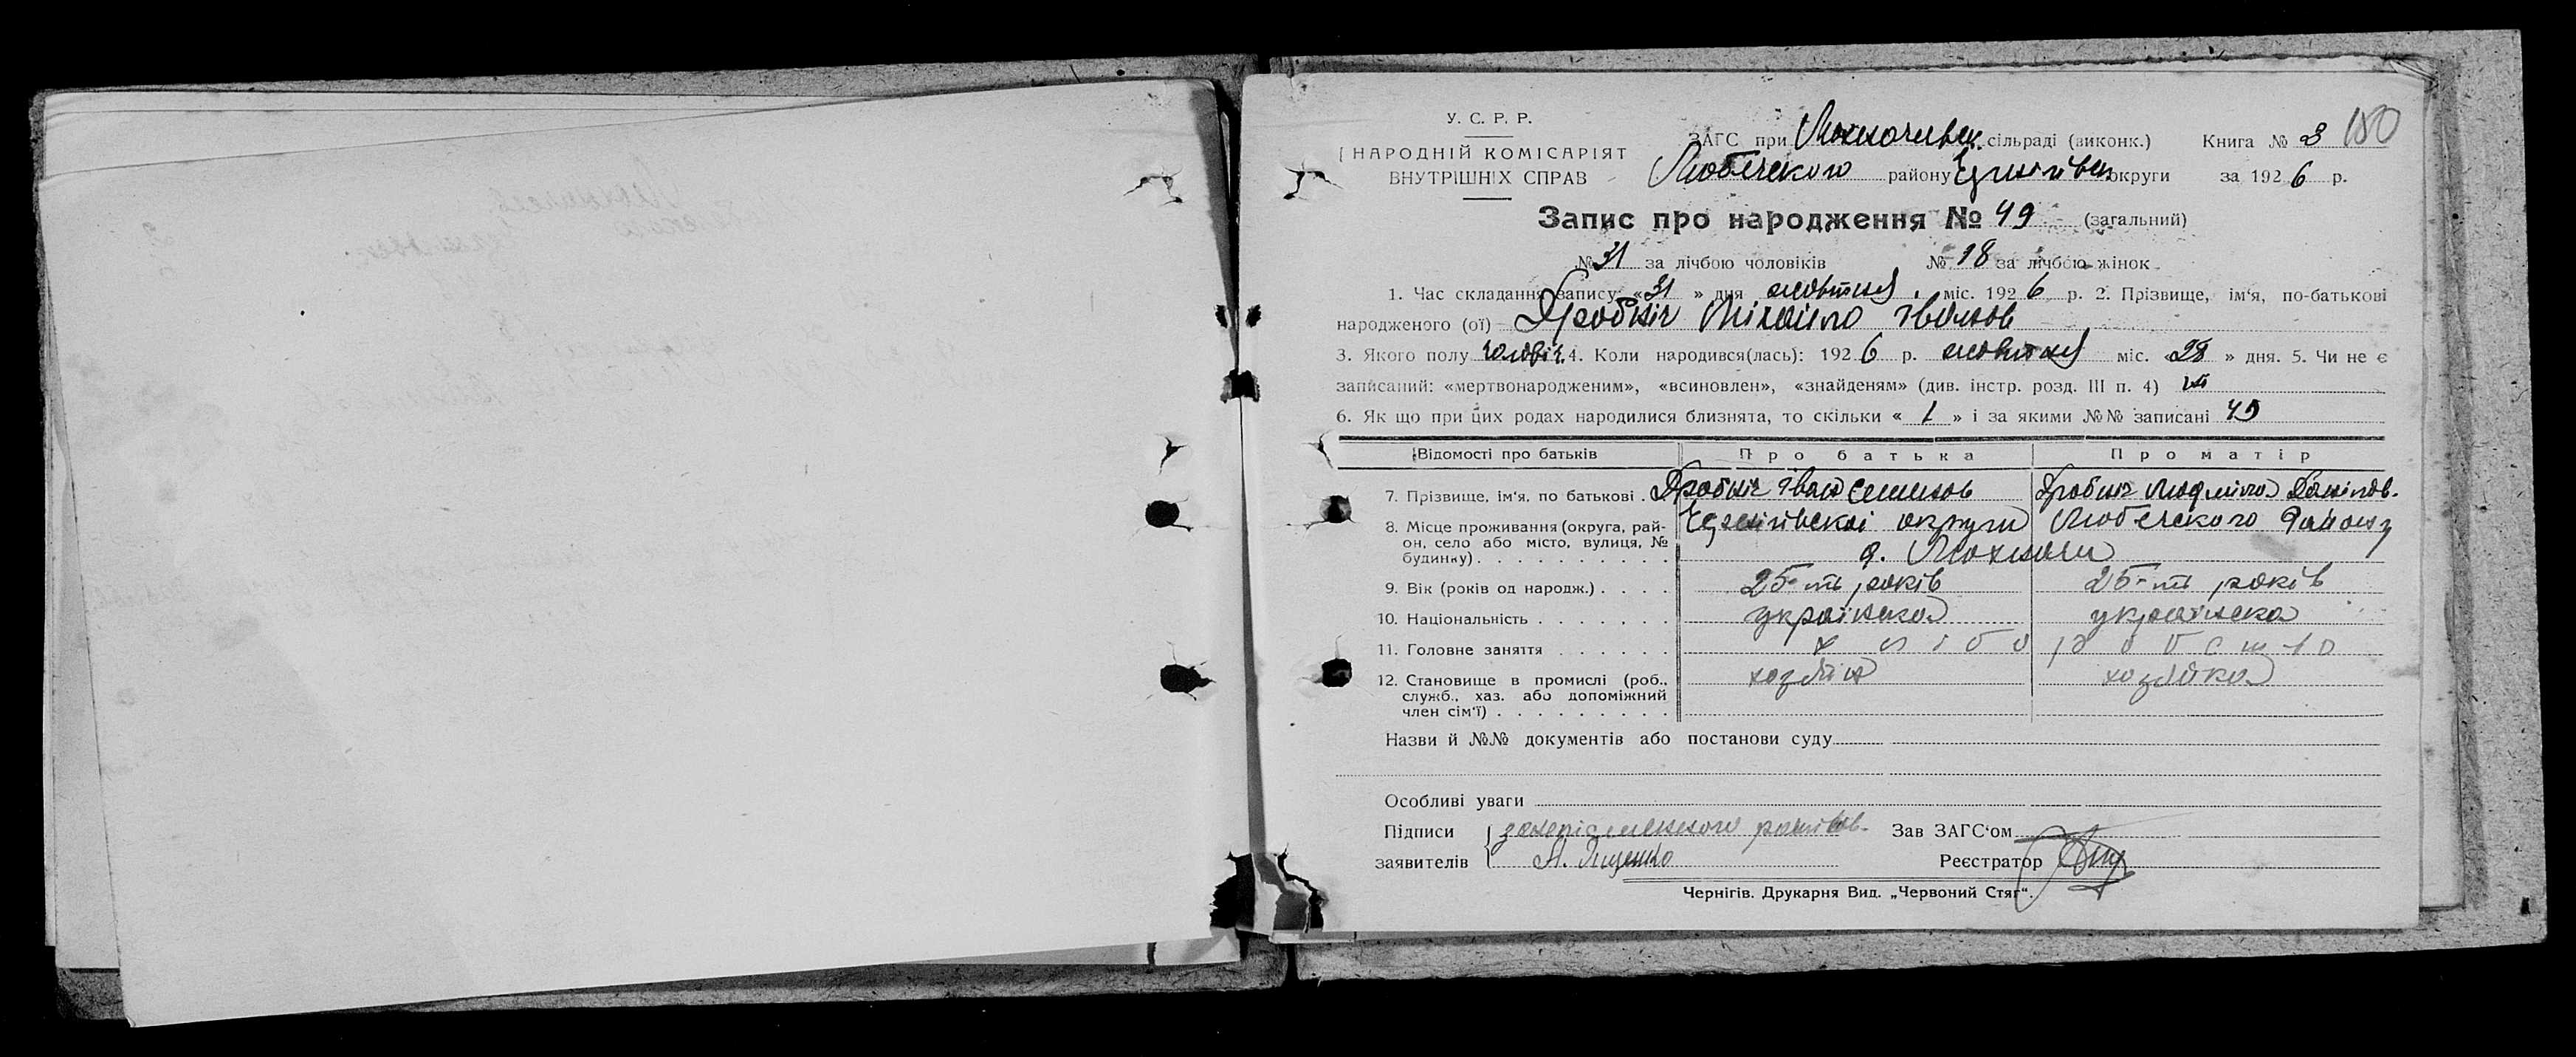 У. С. Р. Р.
НАРОДНІЙ КОМІСАРІЯТ
ВНУТРІШНІХ СПРАВ
ЗАГС при сільраді (виконк.) Книга № 3 150
Любечского району округи за 1926 р.
Запис про народження № 49 (загальний)
№ 31 за лічбою чоловіків № 18 за лічбою жінок
1. Час складання запису: «31» дня жовтня міс. 1926 р. 2. Прізвище, ім'я, по-батькові
народженого (ої) Дробніч Міхайло Іванов
3. Якого полу чоловіч. 4. Коли народився(лась): 1926 р. жовтня міс. «28» дня. 5. Чи не є
записаний: «мертвонародженим», «всиновлен», «знайденям» (див. інстр. розд. III п. 4) ні
6. Як що при цих родах народилися близнята, то скільки «1» і за якими №№ записані 49
Відомості про батьків Про батька Про матір
7. Прізвище, ім'я, по батькові . Дробніч Іван Дробніч Людміла
8. Місце проживання (округа, рай-
он, село або місто, вулиця, №
будинку) . . . . . . . . . . округи Любечского району
с. Мохначи
9. Вік (років од народж.) . . . . 25-ть років 25-ть років
10. Національність . . . . . . . українска українска
11. Головне заняття . . . . . . хлібо робство
12. Становище в промислі (роб.,
служб., хаз. або допоміжний
член сім'ї) . . . . . . . . . хозяїн хозяйка
Назви й №№ документів або постанови суду
Особливі уваги
Підписи
заявителів
Зав ЗАГС'ом
Реєстратор
Чернігів. Друкарня Вид. „Червоний Стяг".